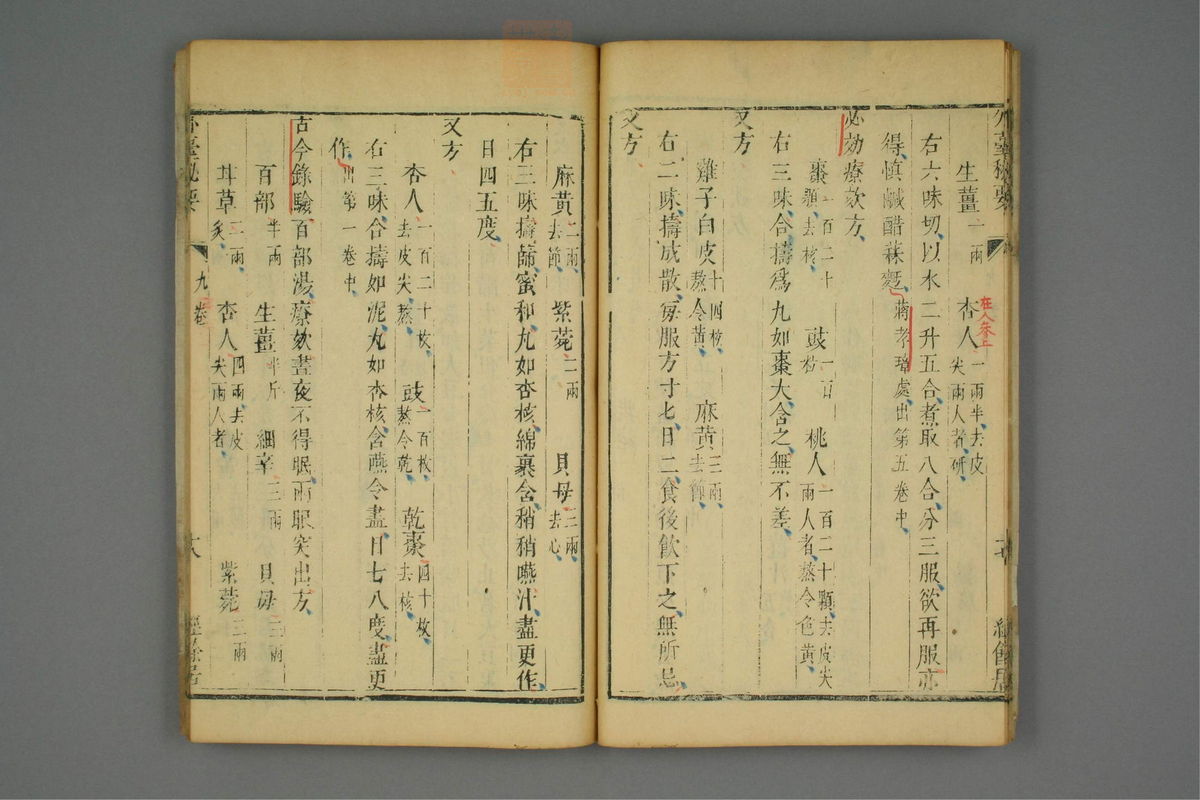 外臺秘要
生薑一兩 杏人一兩半去皮尖兩人者研
在人参上
右六味切以水二升五合煮取八合分三服欲再服亦
得慎鹹醋蒜麪蔣孝璋處出第五卷中
必効療欬方
棗一百二十顆去核 豉一百粒 桃人一百二十顆去皮尖兩人者熬令色黄
右三味合擣爲丸如棗大含之無不差
又方
雞子白皮十四枚熬令黄 麻黄三兩去節
右二味擣成散每服方寸匕日二食後飲下之無所忌
又方
麻黄二兩去節 紫菀二兩 貝母三兩去心
右三味擣篩蜜和丸如杏核綿裹含稍稍嚥汁盡更作
日四五度
又方
杏人一百二十枚去皮尖熬 豉一百枚熬令乾 乾棗四十枚去核
右三味合擣如泥丸如杏核含嚥令盡日七八度盡更
作出第一卷中
古今錄驗百部湯療欬晝夜不得眠兩眼突出方
百部半兩 生薑半斤 細辛三兩 貝母三兩
甘草二兩炙 杏人四兩去皮尖兩人者 紫菀三兩
外臺秘要 九卷 十八 經餘居